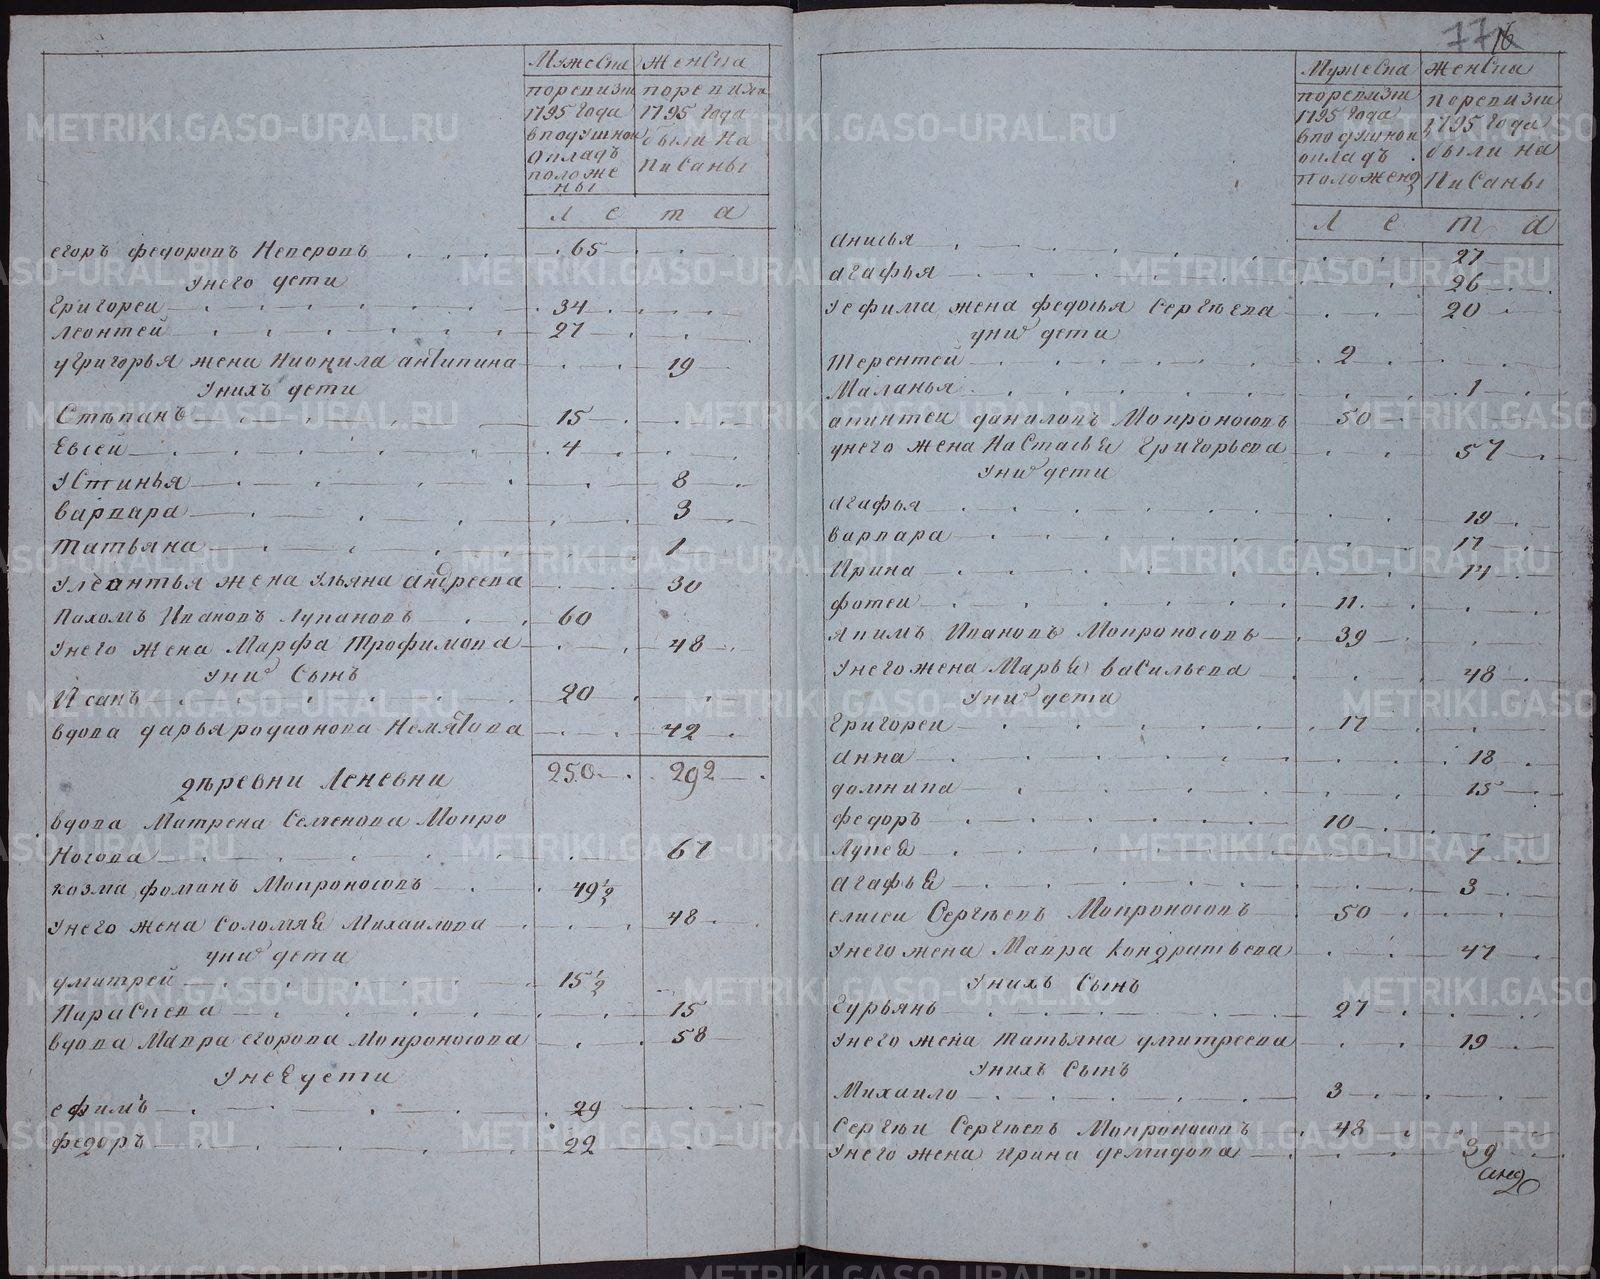 Мужеска
Женска
поревизии
1795 года
вподушной
окладъ
положе
ны
поревизии
1795 года
были на
писаны
л е т а
егоръ федоровъ Неверовъ 65
Унего дети
Григореи 34
Леонтей 27
угригорья жена Нионила антипина 19
Унихъ дети
Стѣпанъ 15
Евсей 4
Устинья 8
варвара 3
татьяна 1
Улеонтья жена Ульяна андреева 30
Пахомъ Ивановъ Лупановъ 60
Унего жена Марфа Трофимова 48
Уних Сынъ
Исакъ 20
вдова дарья родионова 42
250 292
дѣревни Леневки
вдова Матрена Семенова Мокро
Носова 67
козма фоминъ Мокроносовъ 49 1/2
Унего жена Соломия Михаилова 48
уних дети
дмитрей 15 1/2
Параскева 15
вдова Мавра егорова Мокроносова 58
Унее дети
ефимъ 29
федоръ 22
16
Мужеска
Женска
поревизии
1795 года
вподушной
окладъ
положен
поревизии
1795 года
были на
писаны
л е т а
анисья 27
агафья 26
Уефима жена федосья Сергѣева 20
уних дети
терентей 2
Маланья 1
даниловъ Мокроносовъ 50
унего жена Настасья Григорьева 57
Уних дети
агафья 19
варвара 17
Ирина 14
фотеи 11
якимъ Ивановъ Мокроносовъ 39
Унего жена Марья васильева 48
Уних дети
Григореи 17
анна 18
домника 15
федоръ 10
Лукея 7
агафья 3
елисеи Сергѣевъ Мокроносовъ 50
Унего жена Мавра кондратьева 47
Унихъ Сынъ
Гурьянъ 27
Унего жена татьяна дмитреева 19
Унихъ Сынъ
Михаило 3
Сергѣи Сергѣевъ Мокроносовъ 48
Унего жена Ирина демидова 39
METRIKI.GASO-URAL.RU